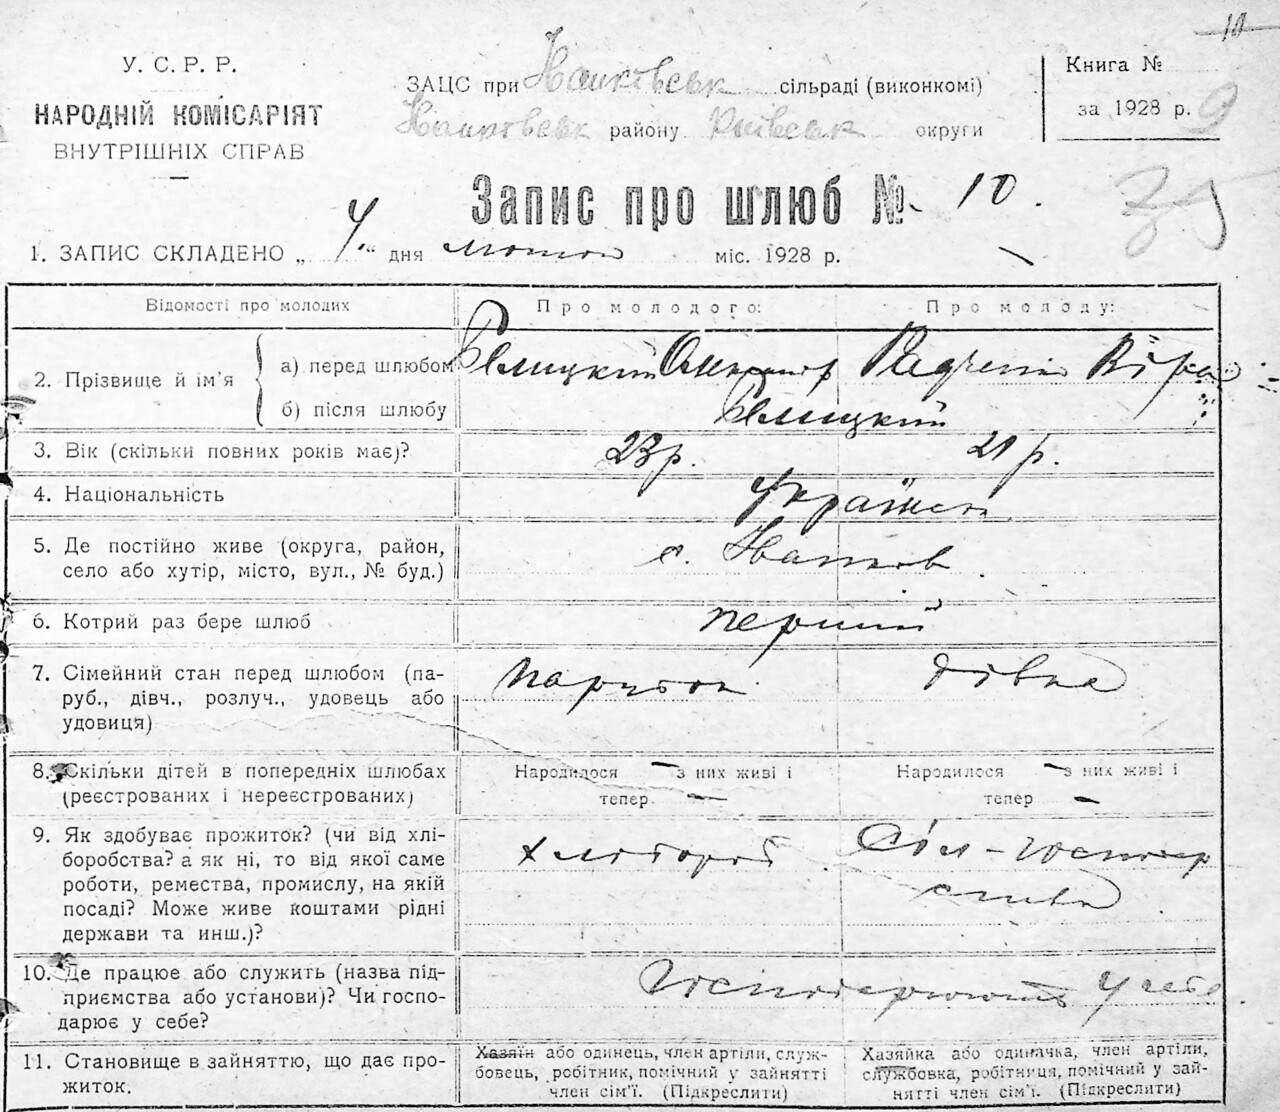 10
У. С. Р. Р.
НАРОДНІЙ КОМІСАРІЯТ
ВНУТРІШНІХ СПРАВ
ЗАЦС при сільраді (виконкомі)
району Київськ округи
Книга №
за 1928 р. 9
Запис про шлюб № 10.
35
1. ЗАПИС СКЛАДЕНО „ 4 " дня лютого міс. 1928 р.
Відомості про молодих
Про молодого:
Про молоду:
2. Прізвище й ім'я
а) перед шлюбом
б) після шлюбу
Вíра
3. Вік (скільки повних років має)?
23 р.
21 р.
4. Національність
5. Де постійно живе (округа, район,
село або хутір, місто, вул., № буд.)
с.
6. Котрий раз бере шлюб
перший
7. Сімейний стан перед шлюбом (па-
руб., дівч., розлуч., удовець або
удовиця)
парубок
дівка
8. Скільки дітей в попередніх шлюбах
(реєстрованих і нереєстрованих)
Народилося — з них живі і
тепер —
Народилося — з них живі і
тепер —
9. Як здобуває прожиток? (чи від хлі-
боробства? а як ні, то від якої саме
роботи, ремества, промислу, на якій
посаді? Може живе коштами рідні
держави та инш.)?
хлібороб
10. Де працюе або служить (назва під-
приємства або установи)? Чи госпо-
дарює у себе?
Господарюють у себе.
11. Становище в зайняттю, що дає про-
житок.
Хазяїн або одинець, член артіли, служ-
бовець, робітник, помічний у зайнятті
член сім'ї. (Підкреслити)
Хазяйка або одиначка, член артіли,
службовка, робітниця, помічний у зай-
нятті член сім'ї. (Підкреслити)